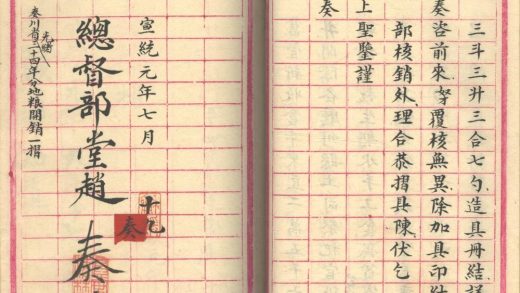 三斗三升三合七勺造具冊結詳
奏咨前來奴覆核無異除加具印結
部核銷外理合恭摺具陳伏乞
上聖鑒謹
奏
宣統元年七月
十九
奏
總督部堂趙 奏
奏川省光緒二十四年分地糧開銷一摺